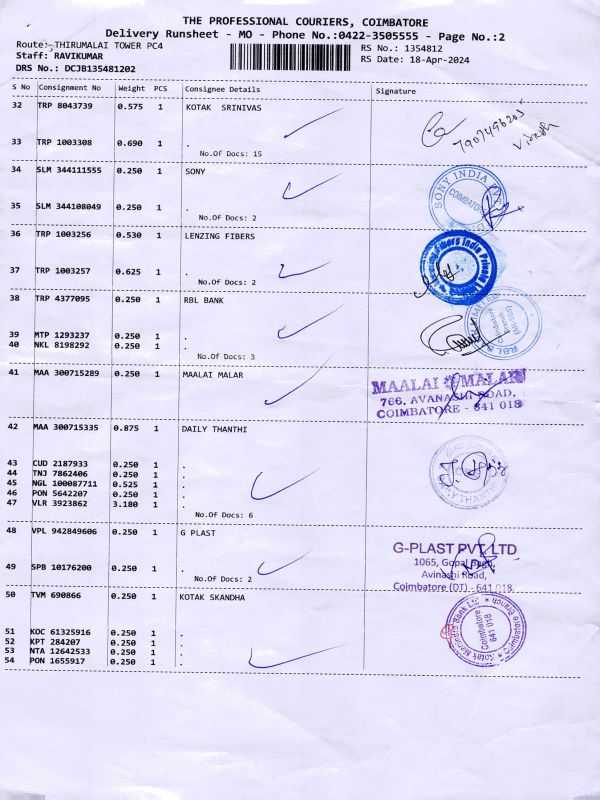 THE PROFESSIONAL COURIERS, COIMBATORE
Delivery Runsheet - MO - Phone No.:0422-3505555 - Page No.:2
Route: THIRUMALAI TOWER PC4
RS No.: 1354812
Staff: RAVIKUMAR
RS Date: 18-Apr-2024
DRS No.: DCJB135481202
S No Consignment No Weight PCS Consignee Details Signature
32 TRP 8043739 0.575 1 KOTAK SRINIVAS
7907496205
Vinodh
33 TRP 1003308 0.690 1 .
No.Of Docs: 15
34 SLM 344111555 0.250 1 SONY
SONY INDIA PVT
COIMBATORE
35 SLM 344108049 0.250 1 .
No.Of Docs: 2
36 TRP 1003256 0.530 1 LENZING FIBERS
Lenzing Fibers India Private
37 TRP 1003257 0.625 1 .
No.Of Docs: 2
38 TRP 4377095 0.250 1 RBL BANK
RBL
Coimbatore
Branch
39 MTP 1293237 0.250 1 .
40 NKL 8198292 0.250 1 .
No.Of Docs: 3
41 MAA 300715289 0.250 1 MAALAI MALAR
MAALAI MALAR
766, AVANASHI ROAD,
COIMBATORE - 641 018
42 MAA 300715335 0.875 1 DAILY THANTHI
43 CUD 2187933 0.250 1 .
44 TNJ 7862406 0.250 1 .
45 NGL 100087711 0.525 1 .
46 PON 5642207 0.250 1 .
47 VLR 3923862 3.180 1 .
No.Of Docs: 6
48 VPL 942849606 0.250 1 G PLAST
G-PLAST PVT LTD
1065, Gopal Bagh,
Avinashi Road,
Coimbatore (DT) - 641 018.
49 SPB 10176200 0.250 1 .
No.Of Docs: 2
50 TVM 690866 0.250 1 KOTAK SKANDHA
Kotak Mahindra Bank Ltd
Coimbatore
641 018
Coimbatore Branch
51 KOC 61325916 0.250 1 .
52 KPT 284207 0.250 1 .
53 NTA 12642533 0.250 1 .
54 PON 1655917 0.250 1 .